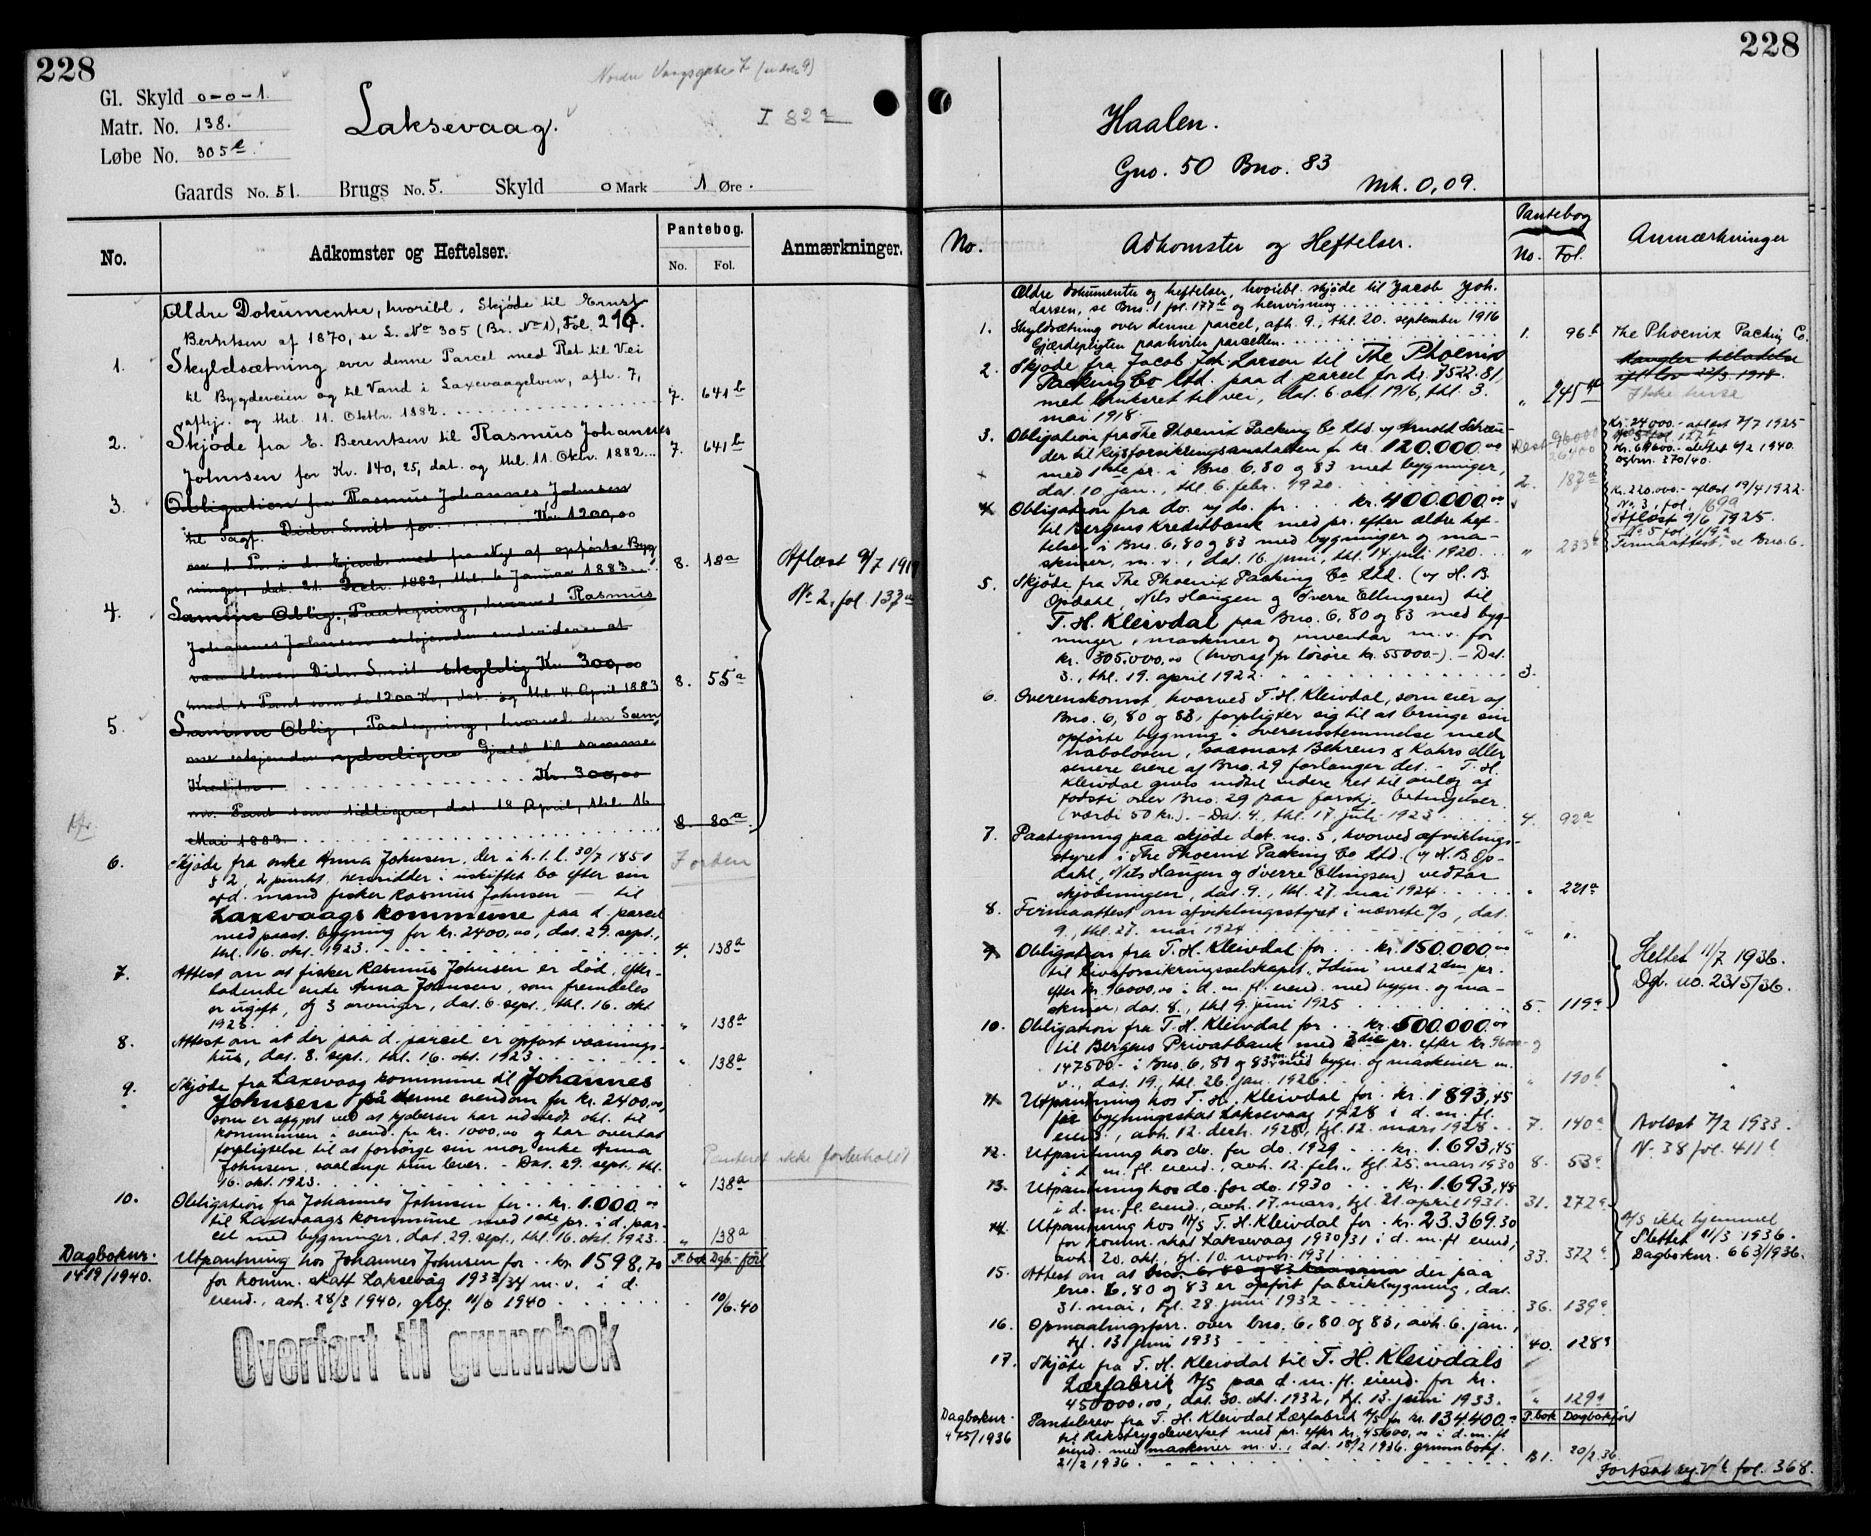 228
Gl. Skyld 0-0-1.
Matr. No. 138.
Løbe No. 305 e
Laksevaag.
I 82 a
Gaards No. 51. Brugs No. 5. Skyld 0 Mark 1 Øre.
No. Adkomster og Heftelser. Pantebog. No. Fol. Anmærkninger.
Ældre Dokumenter, hvoribl. Skjøde til Ernst
Berntsen af 1870, se L. No 305 (Br. No 1), Fol. 216.
1. Skyldsætning over denne Parcel med Ret til Vei
til Bygdeveien og til Vand i Laxevaagelven, afh. 7,
afhj. og thl. 11. Oktbr. 1882. 7. 641 b
2. Skjøde fra E. Berentsen til Rasmus Johannes
Johnsen for Kr. 140,25, dat. og thl. 11. Oktr. 1882... 7. 641 b
3. Obligation fra Rasmus Johannes Johnsen
til Sagf. Didr. Smitt for Kr. 1200,00
om 1. Pr. i d. Ejend. med fra Nyt af opførte Byg
ninger, dat. 21. Decbr. 1882, thl. 6 Januar 1883 8. 18 a Aflæst 9/7 1919
No 2, fol. 137 a
4. Samme Oblig., Paategning, hvorved Rasmus
Johannes Johnsen erkjender endvidere at
være bleven Didr. Smit skyldig Kr. 300,00
med s. Pant som de 1200 Kr., dat. og thl. 4. April 1883 8. 55 a
5. Samme Oblig., Paategning, hvorved den Sam
me erkjender yderligere Gjæld til samme
Kreditor Kr. 300,00
m. Pant som tidligere, dat. 18 April, thl. 16
Mai 1883. 8. 80 a
6. Skjøde fra enke Anna Johnsen, der i h. t. l. 30/7 1851
§ 2, 2 punkt, hensidder i uskiftet bo efter sin
afd. mand fisker Rasmus Johnsen — til
Laxevaags kommune paa d. parcel
med paast. bygning for kr. 2400,00, dat. 29. sept.,
thl. 16. okt. 1923. 4. 138 a
7. Attest om at fisker Rasmus Johnsen er død, efter-
ladende enke Anna Johnsen, som fremdeles
er ugift, og 3 arvinger, dat. 6. sept., thl. 16. okt
1923. " 138 a
8. Attest om at der paa d. parcel er opført vaanings-
hus, dat. 8. sept., thl. 16. okt. 1923 " 138 a
9. Skjøde fra Laxevaag kommune til Johannes
Johnsen på denne eiendom for kr. 2400,00,
som er afgjort ved at kjøberen har udstedt obl. til
kommunen i eiend. for kr. 1000,00 og har overtat
forpligtelse til at forsørge sin mor enke Anna
Johnsen, saalænge hun lever. - Dat. 29. sept., thl.
16. okt. 1923. " 138 a
Panteret ikke forbeholdt
10. Obligation fra Johannes Johnsen for .. kr. 1.000.00
til Laxevaags kommune med 1ste pr. i d. par-
cel med bygninger, dat. 29. sept., thl. 16. okt. 1923. " 138 a
Dagboknr. Utpantning hos Johannes Johnsen for .. kr. 1598,70 P. bok Dgb.-ført
1419/1940. for komm. skatt Laksevåg 1933/34 m. v. i d.
eiend., avh. 28/3 1940, grbf. 11/6 1940 10/6.40
Overført til grunnbok
228
Haalen.
Gno. 50 Bno. 83
Mk. 0,09.
No. Adkomster og Heftelser. Pantebog No. Fol. Anmærkninger
Ældre dokumenter og heftelser, hvoribl. skjøde til Jacob Joh.
Larsen, se Bno. 1 fol. 177 b og henvisning
1. Skyldsætning over denne parcel, afh. 9., thl. 20. september 1916
Gjærdepligten paahviler parcellen. 1. 96 b The Phoenix Packing Co.
2. Skjøde fra Jacob Joh. Larsen til The Phoenix
Packing Co Ltd. paa d. parsel for kr. 7522.81,
med bruksret til vei, dat. 6. okt. 1916, thl. 3.
mai 1918. " 245
Mangler tilladelse
3. Obligation fra The Phoenix Packing Co Ltd. v/ Arnold Schæu-
der til Rigsforsikringsanstalten for kr. 120.000.00
med 1ste pr. i Bno. 6, 80 og 83 med bygninger,
dat. 10 jan., thl. 6. febr. 1920 2. 187 a
Kr. 24000.- aflæst 7/7 1925
No 5 fol. 127 b
Kr. 69600.- slettet 6/2 1940.
Dagbnr. 370/40.
4. Obligation fra do. v/ do. for kr. 400.000.00
til Bergens Kreditbank med pr. efter ældre hef-
telser i Bno. 6, 80 og 83 med bygninger og ma-
skiner, m. v., dat. 16. juni, thl. 14. juli 1920 " 233 b
Kr. 220.000.- aflæst 19/4 1922.
No. 3, fol. 69 a
Aflæst 9/6 1925.
No 5 fol. 119 a
Firmaattest, se Bno. 6.
5. Skjøde fra The Phoenix Packing Co Ltd. (v/ H. B.
Opdahl, Nils Haugen og Sverre Ellingsen) til
T. H. Kleivdal paa Bno. 6, 80 og 83 med byg-
ninger, maskiner og inventar m. v. for
kr. 305.000,00 (hvoraf for løsøre kr. 55000.-). - Dat.
3., thl. 19. april 1922. 3.
6. Overenskomst, hvorved T. H. Kleivdal, som eier af
Bno. 6, 80 og 83, forpligter sig til at bringe sin
opførte bygning i overensstemmelse med
naboloven, saasnart Behrens & Kahrs eller
senere eiere af Bno. 29 forlanger det. - T. H.
Kleivdal gives indtil videre ret til anlæg af
fodsti over Bno. 29 paa forskj. betingelser.
(værdi 50 kr.). - Dat. 4., thl. 17. juli 1923 4. 92 a
7. Paategning paa skjøde dok. no. 5, hvorved afviklings-
styret i The Phoenix Packing Co Ltd. (v/ H. B. Op-
dahl, Nils Haugen og Sverre Ellingsen) vedtar
skjødningen, dat. 9., thl. 27. mai 1924 " 221 a
8. Firmaattest om afviklingsstyret i nævnte a/s, dat.
9., thl. 27. mai 1924 " "
9. Obligation fra T. H. Kleivdal for .. kr. 150.000.00
til Livsforsikringsselskapet "Idun" med 2den pr.
efter kr. 96000,00 i d. m. fl. eiend. med bygn. og ma-
skiner, dat. 8., thl. 9. juni 1925 5. 119 a
Slettet 11/7 1936.
Dgb. no. 2315/36.
10. Obligation fra T. H. Kleivdal for .. kr. 500.000.00
til Bergens Privatbank med 3die pr. efter kr. 96000.- og
147500.- i Bno. 6, 80 og 83 m. fl. med bygn. og maskiner m.
v., dat. 19., thl. 26. jan. 1926. " 190 b
11. Utpantning hos T. H. Kleivdal for . kr. 1893,45
for bygningsskat Laksevaag 1928 i d. m. fl.
eiend., avh. 12. decbr. 1928, tgl. 12. mars 1928 7. 140 a
Avlæst 7/2 1933.
No. 38 fol. 411 b
12. Utpantning hos do. for do. 1929 . . kr. 1.693,45
i d. m. fl. eiend., avh. 12. feb., tgl. 25. mars 1930 8. 53 a
13. Utpantning hos do. for do. 1930 . . kr. 1.693,45
i d. m. fl. eiend., avh. 17. mars, tgl. 21. april 1931. 31. 272 a
14. Utpantning hos A/S T. H. Kleivdal for . kr. 23.369.30
for komm. skat Laksevaag 1930/31 i d. m. fl. eiend.,
avh. 20. okt., tgl. 10. novbr. 1931 33. 372 a
A/S ikke hjemmel
Slettet 11/3 1936.
Dagboknr. 663/1936.
15. Attest om at bno. 6, 80 og 83 der paa
bno. 6, 80 og 83 er opført fabrikbygning, dat.
31. mai, tgl. 28. juni 1932 36. 139 a
16. Opmaalingsforr. over bno. 6, 80 og 83, avh. 6. jan.,
tgl. 13 juni 1933 40. 128 a
17. Skjøte fra T. H. Kleivdal til T. H. Kleivdals
Lærfabrik A/S paa d. m. fl. eiend. for kr.
450000,00, dat. 30. okt. 1932, tgl. 13. juni 1933. " 129 a
Dagboknr. Pantebrev fra T. H. Kleivdal Lærfabrik A/S for kr. 134.400.- P. bok Dagbokført
475/1936 til Rikstrygdeverket med pr. efter kr. 45600,00 i d. m. fl.
eiend. med maskiner m. v., dat. 18/2 1936. grunnbokf.
21/2 1936. B 1. 20/2.36
Fortsat fol. 368.